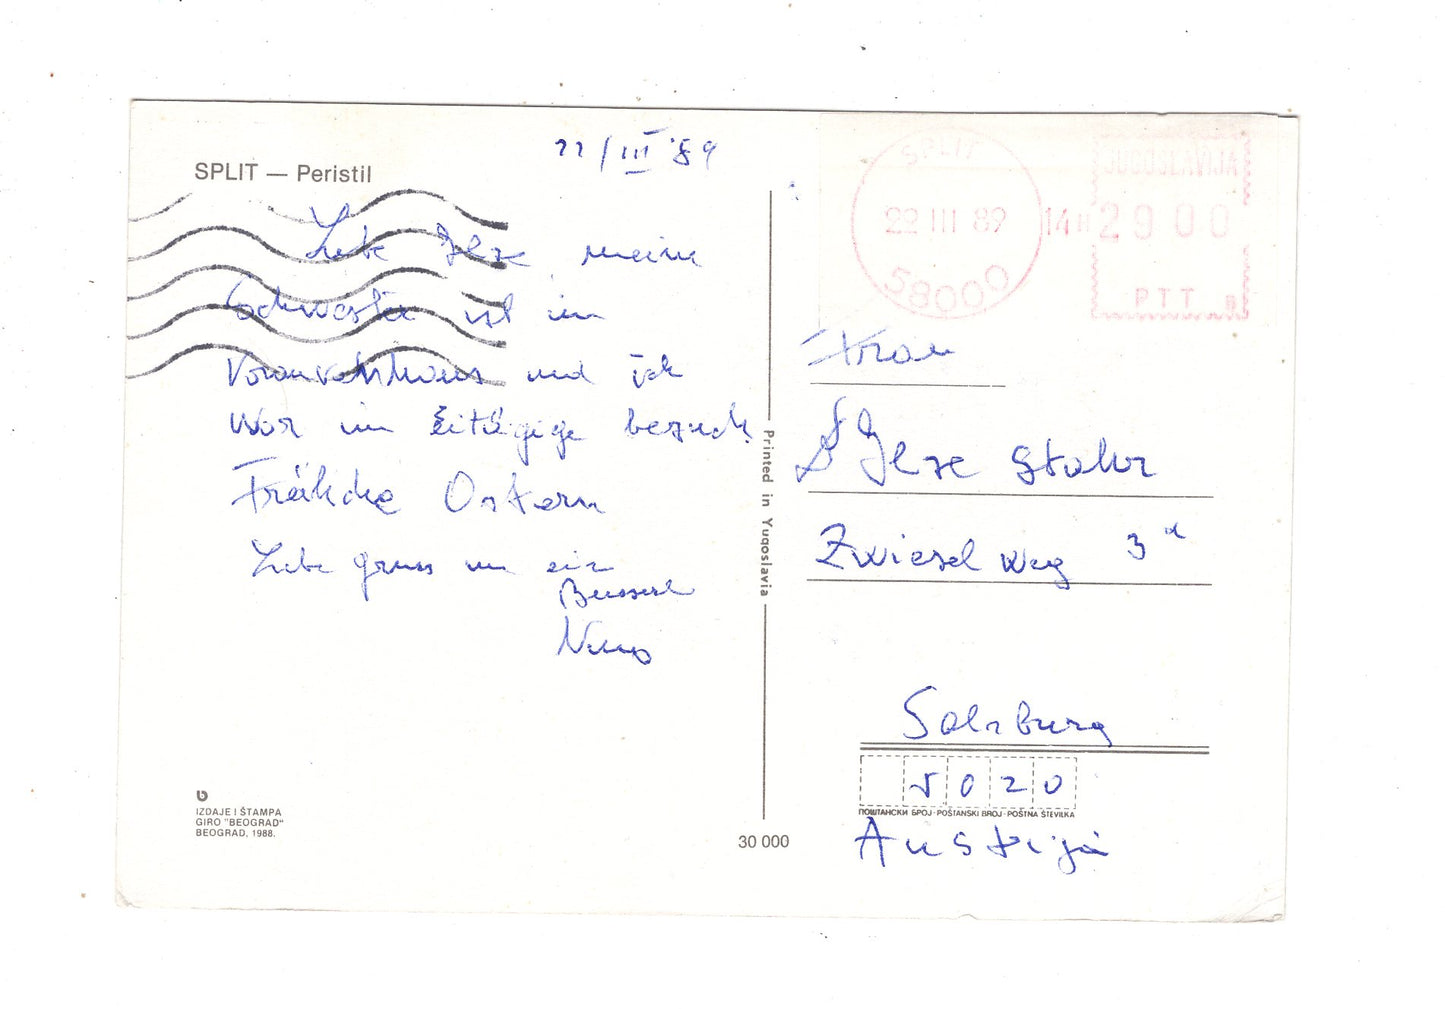 SPLIT — Peristil
22/III '89
Liebe Ilse meine
Schwester ist im
und ich
war im besuch
Ostern
Liebe gruss un ein
Busserl
IZDAJE I ŠTAMPA
GIRO "BEOGRAD"
BEOGRAD, 1988.
Printed in Yugoslavia
30 000
SPLIT
22 III 89 14H
58000
JUGOSLAVIJA
2900
PTT
Frau
Ilse Stohr
Zwiesel Weg 3a
Salzburg
5020
ПОШТАНСКИ БРОЈ-POŠTANSKI BROJ-POŠTNA ŠTEVILKA
Austrija